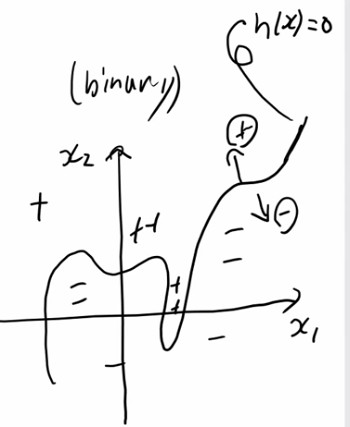 h(x)=0
(binary)
x₂
+
+
++
-
-
=
+
+
-
-
x₁
-
-